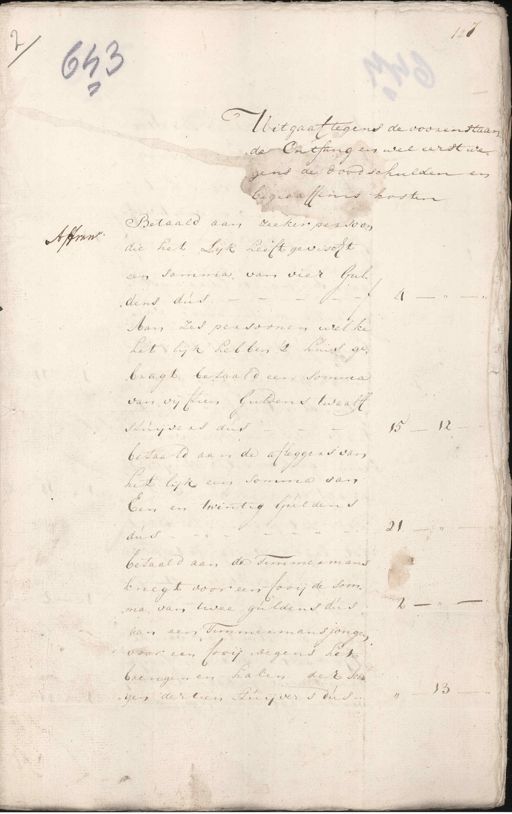 2/
643
127
Uitgaaf tegens de voorenstaan
de Ontfang en wel eerst we
gens de doodschulden en
begraaffenis kosten
Betaald aan zeeker persoon
die het Lyk heeft gevischt
een somma van vier Gul
dens dus - - - - 4 - " - "
Aan zes persoonen welke
het lyk hebben t' huis ge
bragt betaald een somma
van vyftien Guldens twaalf
stuyvers dus - - - 15 - 12 -
betaald aan de afleggers van
het lyk een somma van
Een en twintig guldens
dus - - - - - 21 - " -
betaald aan de Timmermans
knegt voor een fooij de som
ma van twee guldens dus 2 - " -
aan een Timmermans jongen
voor een fooij wegens het
brengen en halen der
gen dertien stuyvers dus - " - 13 -